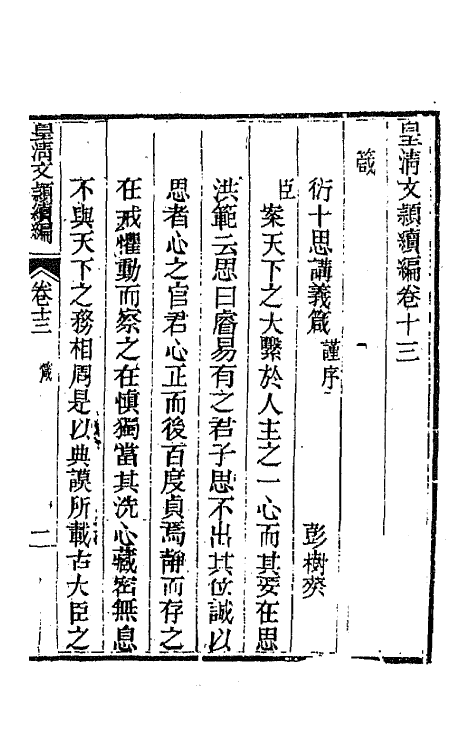 皇清文穎續編卷十三
箴
衍十思講義箴謹序 彭樹葵
臣案天下之大繫於人主之一心而其要在思
洪範云思曰睿易有之君子思不出其位誠以
思者心之官君心正而後百度貞焉靜而存之
在戒懼動而察之在慎獨當其洗心藏密無息
不與天下之務相周是以典謨所載古大臣之
皇清文穎續編 卷十三 箴 一